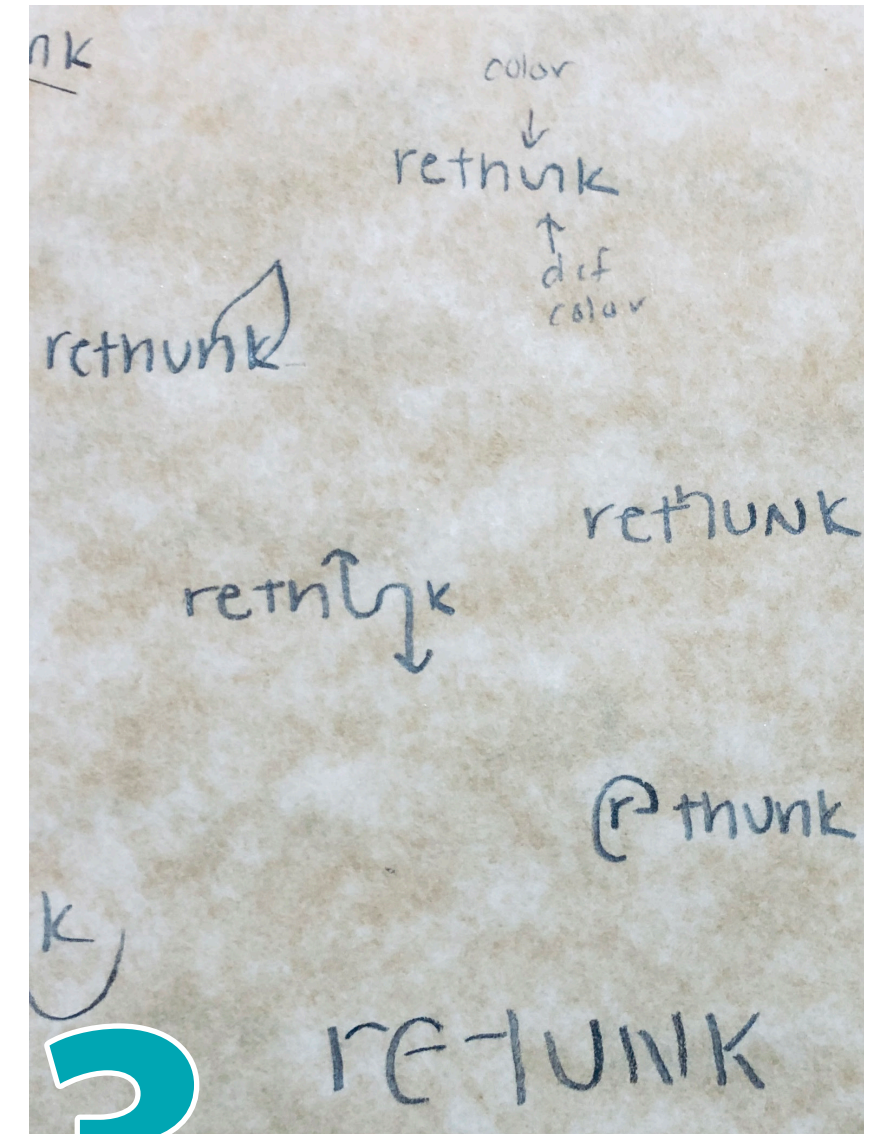 nk
color
rethunk
dif
color
rethunk
rethUNK
rethunk
rethunk
k
rethUNK